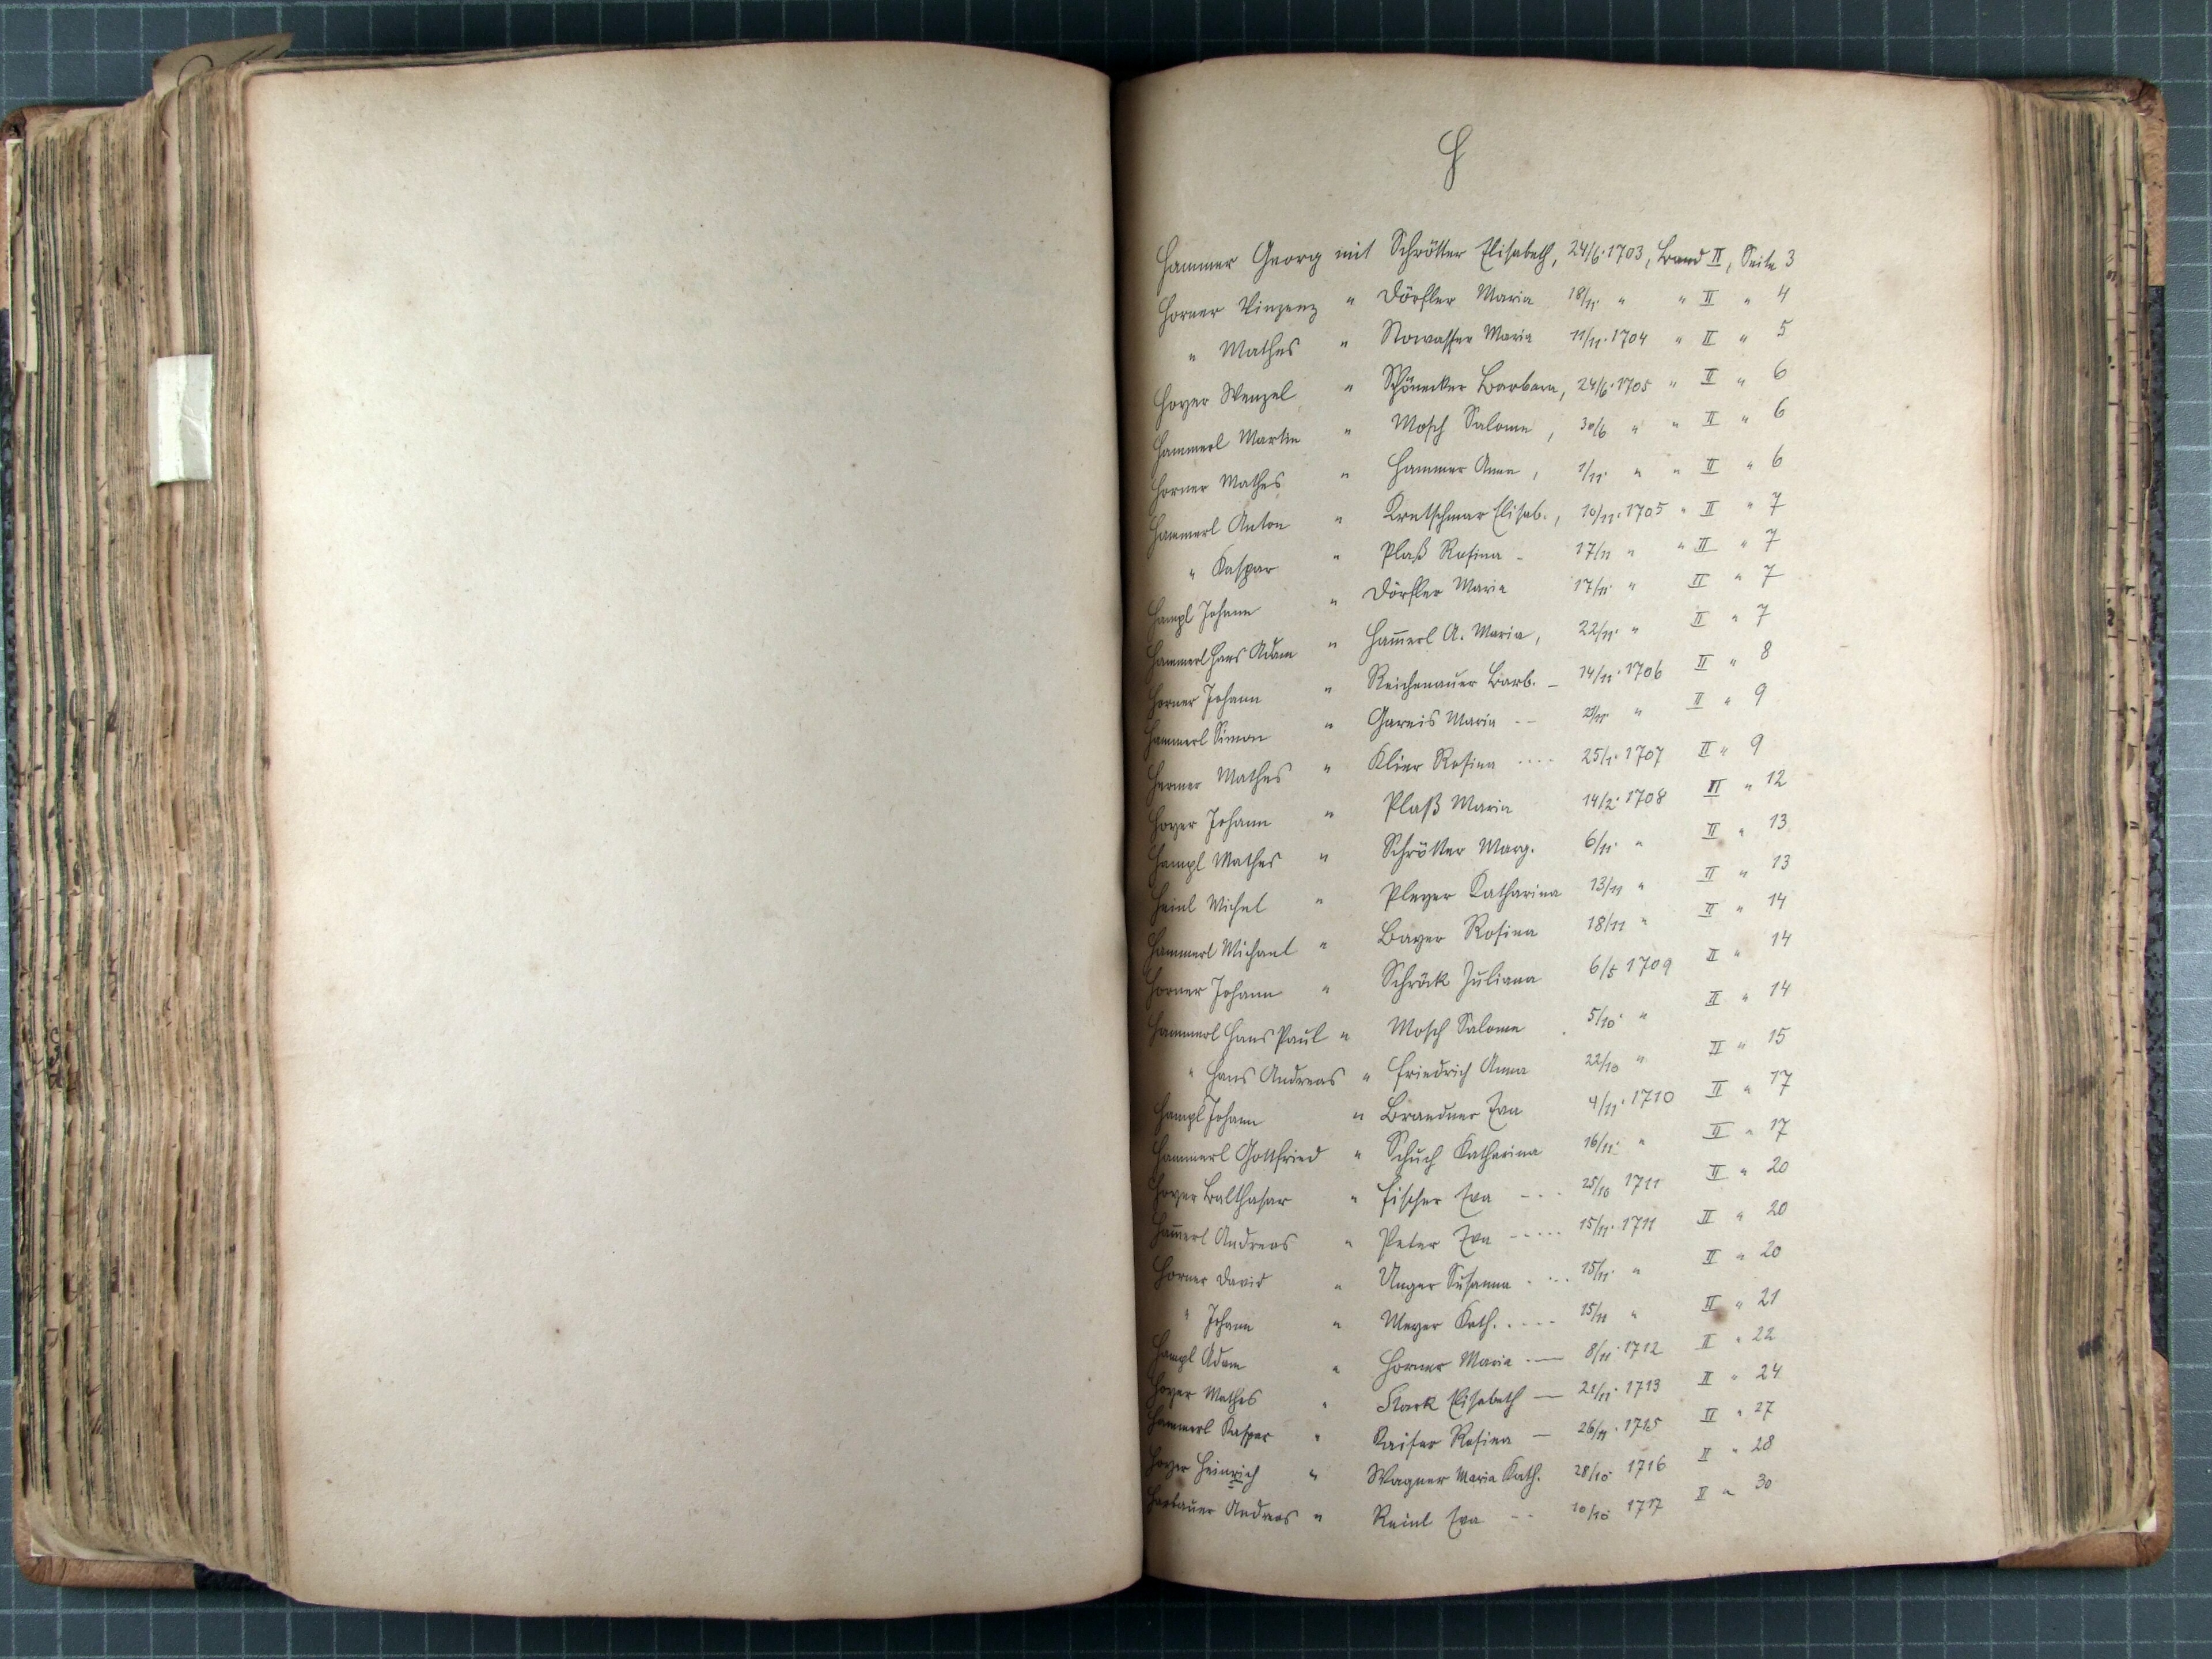 H
Hammer Georg mit Schrötter Elisabeth, 24/6. 1703, Band II, Seite 3
Horner Vinzenz " Dörfler Maria 18/11. " " II " 4
" Mathes " Nowasser Maria 11/11. 1704 " II " 5
Hoyer Wenzel " Schönecker Barbara, 24/6. 1705 " II " 6
Hammerl Martin " Mosch Salome, 30/6 " " II " 6
Horner Mathes " Hammer Anna, 1/11. " " II " 6
Hammerl Anton " Kretschmar Elisab., 10/11. 1705 " II " 7
" Kaspar " Plaß Rosina - 17/11 " " II " 7
Hampl Johann " Dörfler Maria 17/11. " II " 7
Hammerl Hans Adam " Ham̄erl A. Maria, 22/11. " II " 7
Horner Johann " Reichenauer Barb. - 14/11. 1706 II " 8
Hammerl Simon " Gareis Maria -- 21/11. " II " 9
Hermer Mathes " Klier Rosina .... 25/1. 1707 II " 9
Hoyer Johann " Plaß Maria 14/2. 1708 II " 12
Hampl Mathes " Schrötter Marg. 6/11. " II " 13
Heinl Michel " Pleyer Katharina 13/11 " II " 13
Hammerl Michael " Bayer Rosina 18/11 " II " 14
Horner Johann " Schröck Juliana 6/5 1709 II " 14
Hammerl Hans Paul " Mosch Salome . 5/10. " II " 14
" Hans Andreas " Friedrich Anna 22/10 " II " 15
Hampl Johann " Brandner Eva 4/11. 1710 II " 17
Hammerl Gottfried " Schuch Katharina 16/11. " II " 17
Hoyer Balthasar " Fischer Eva -.. 25/10 1711 II " 20
Ham̄erl Andreas " Peter Eva ----- 15/11. 1711 II " 20
Horner David " Unger Susanna . ... 15/11. " II " 20
" Johann " Meyer Kath. .--- 15/11 " II " 21
Hampl Adam " Horner Maria .— 8/11. 1712 II " 22
Hoyer Mathes " Stark Elisabeth — 21/11. 1713 II " 24
Hammerl Kaspar " Kaiser Rosina — 26/11. 1715 II " 27
Hoyer Heinrich " Wagner Maria Kath. 28/10. 1716 II " 28
Andreas " Reinl Eva -- 10/10 1717 II " 30